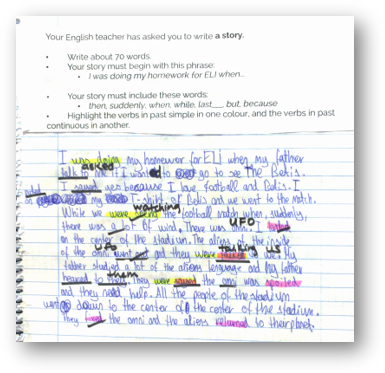 Your English teacher has asked you to write a story.
• Write about 70 words.
• Your story must begin with this phrase:
• I was doing my homework for ELI when...
• Your story must include these words:
• then, suddenly, when, while, last___, but, because
• Highlight the verbs in past simple in one colour, and the verbs in past
continuous in another.
I was doing my homewor for ELI when my father
asked
talk to me if I wanted to go to see The Betis.
I sayed yes because I love football and Betis. I
my t-shirt of Betis and we went to the match.
watching
While we were the football match when, suddenly,
UFO
there was a lot of wind. There was omni. I
on the center of the stadium. The aliens of the inside
Ufo talking us
of the omni went and they were we. My
father studied a lot of the aliens language and my father
them
heared to they. They were sayed the omni was spoiled
and they need help. All the people of the stadium
went down to the center of the center of the stadium.
they fixed the omni and the aliens returned to their planet.